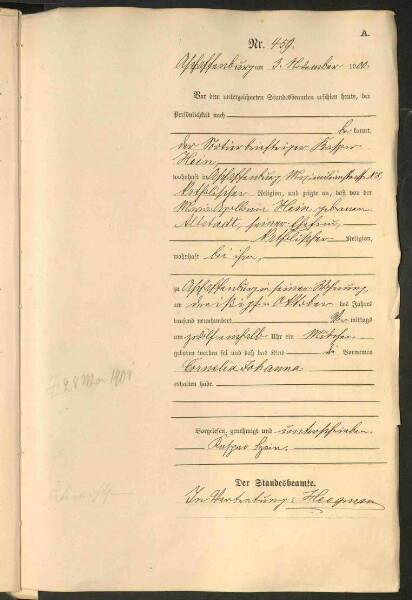 A.
Nr. 459.
Aschaffenburg am 3. November 1900.
Vor dem unterzeichneten Standesbeamten erschien heute, der
Persönlichkeit nach
be kannt,
der Kaspar
Hein,
wohnhaft in Aschaffenburg,
katholischer Religion, und zeigte an, daß von der
Maria Apollonia Hein, geborenen
Altstadt, seiner Ehefrau,
katholischer Religion,
wohnhaft bei ihm,
zu Aschaffenburg in seiner Wohnung,
am dreißigsten Oktober des Jahres
tausend neunhundert Vor mittags
um zwölf einhalb Uhr ein Mädchen
geboren worden sei und daß das Kind die Vornamen
Cornelia Johanna
erhalten habe.
Vorgelesen, genehmigt und unterschrieben.
Kaspar Hein.
Der Standesbeamte.
In Vertretung:
Mai 1901